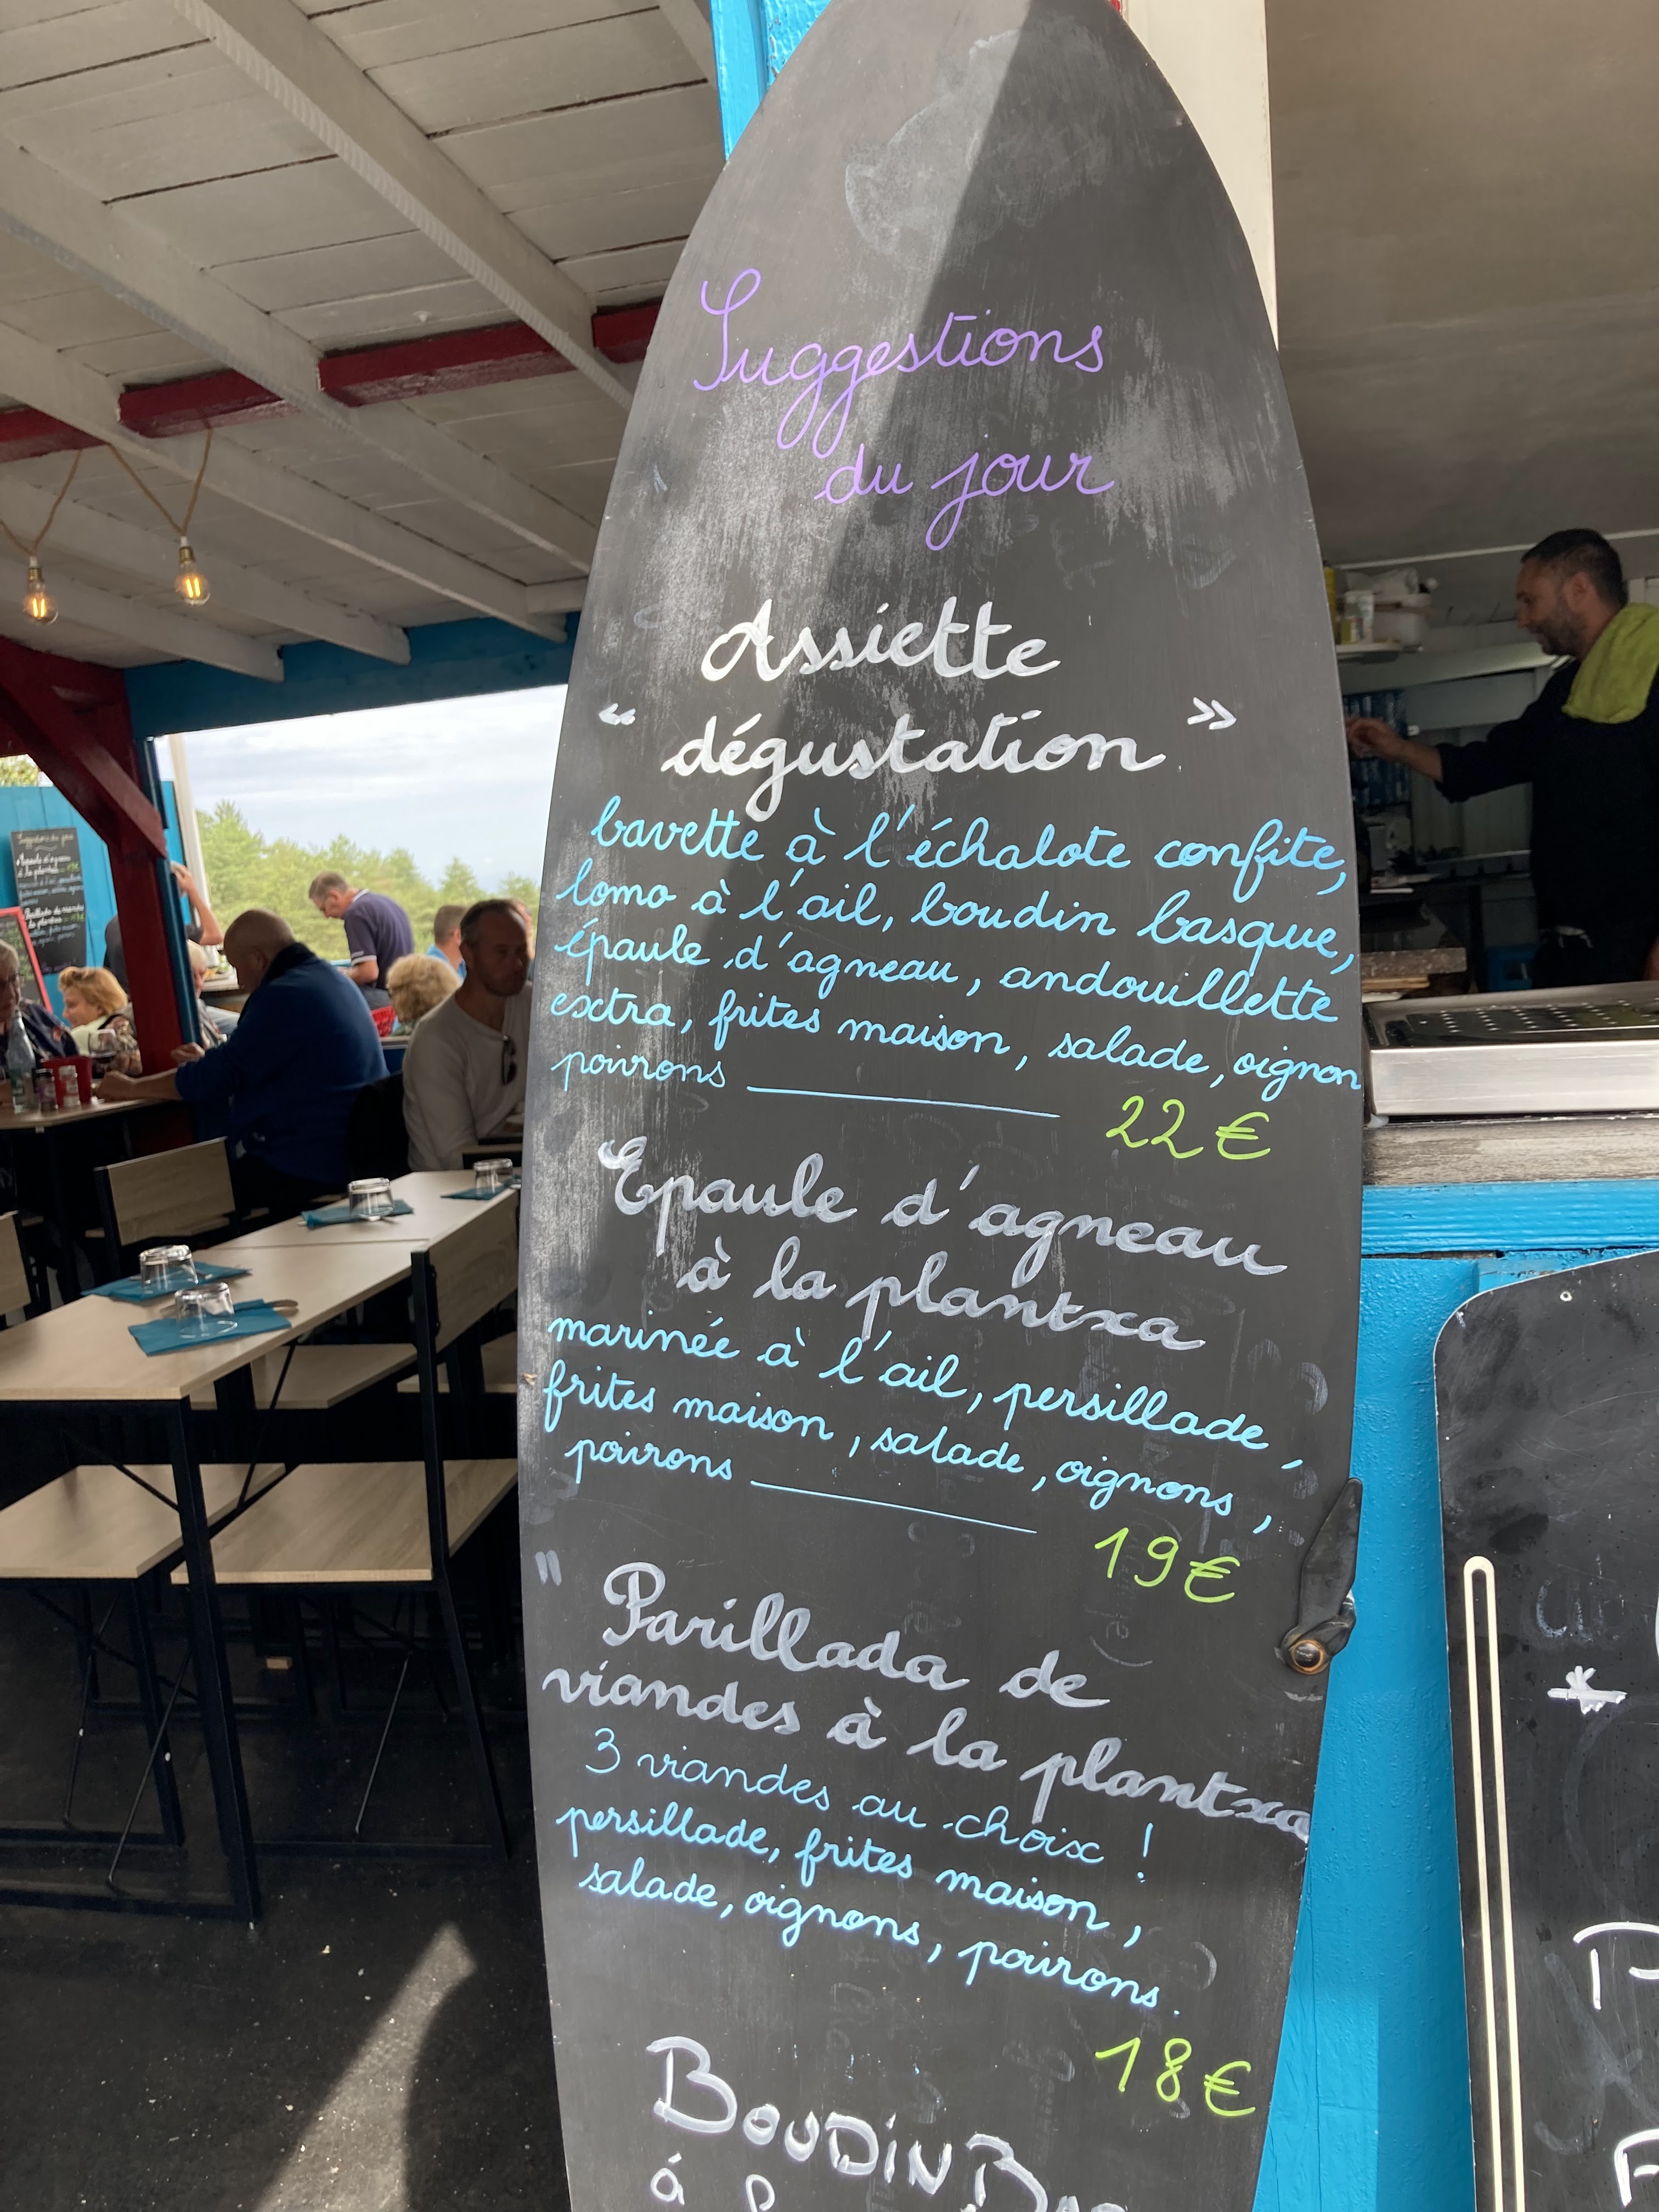 Suggestions
du jour
Assiette
" dégustation "
bavette à l'échalote confite,
lomo à l'ail, boudin basque,
épaule d'agneau, andouillette
extra, frites maison, salade, oignon
poivrons 22€
Epaule d'agneau
à la plantxa
marinée à l'ail, persillade,
frites maison, salade, oignons,
poivrons 19€
" Parillada de
viandes à la plantxa
3 viandes au choix !
persillade, frites maison,
salade, oignons, poivrons.
18€
BOUDIN
à